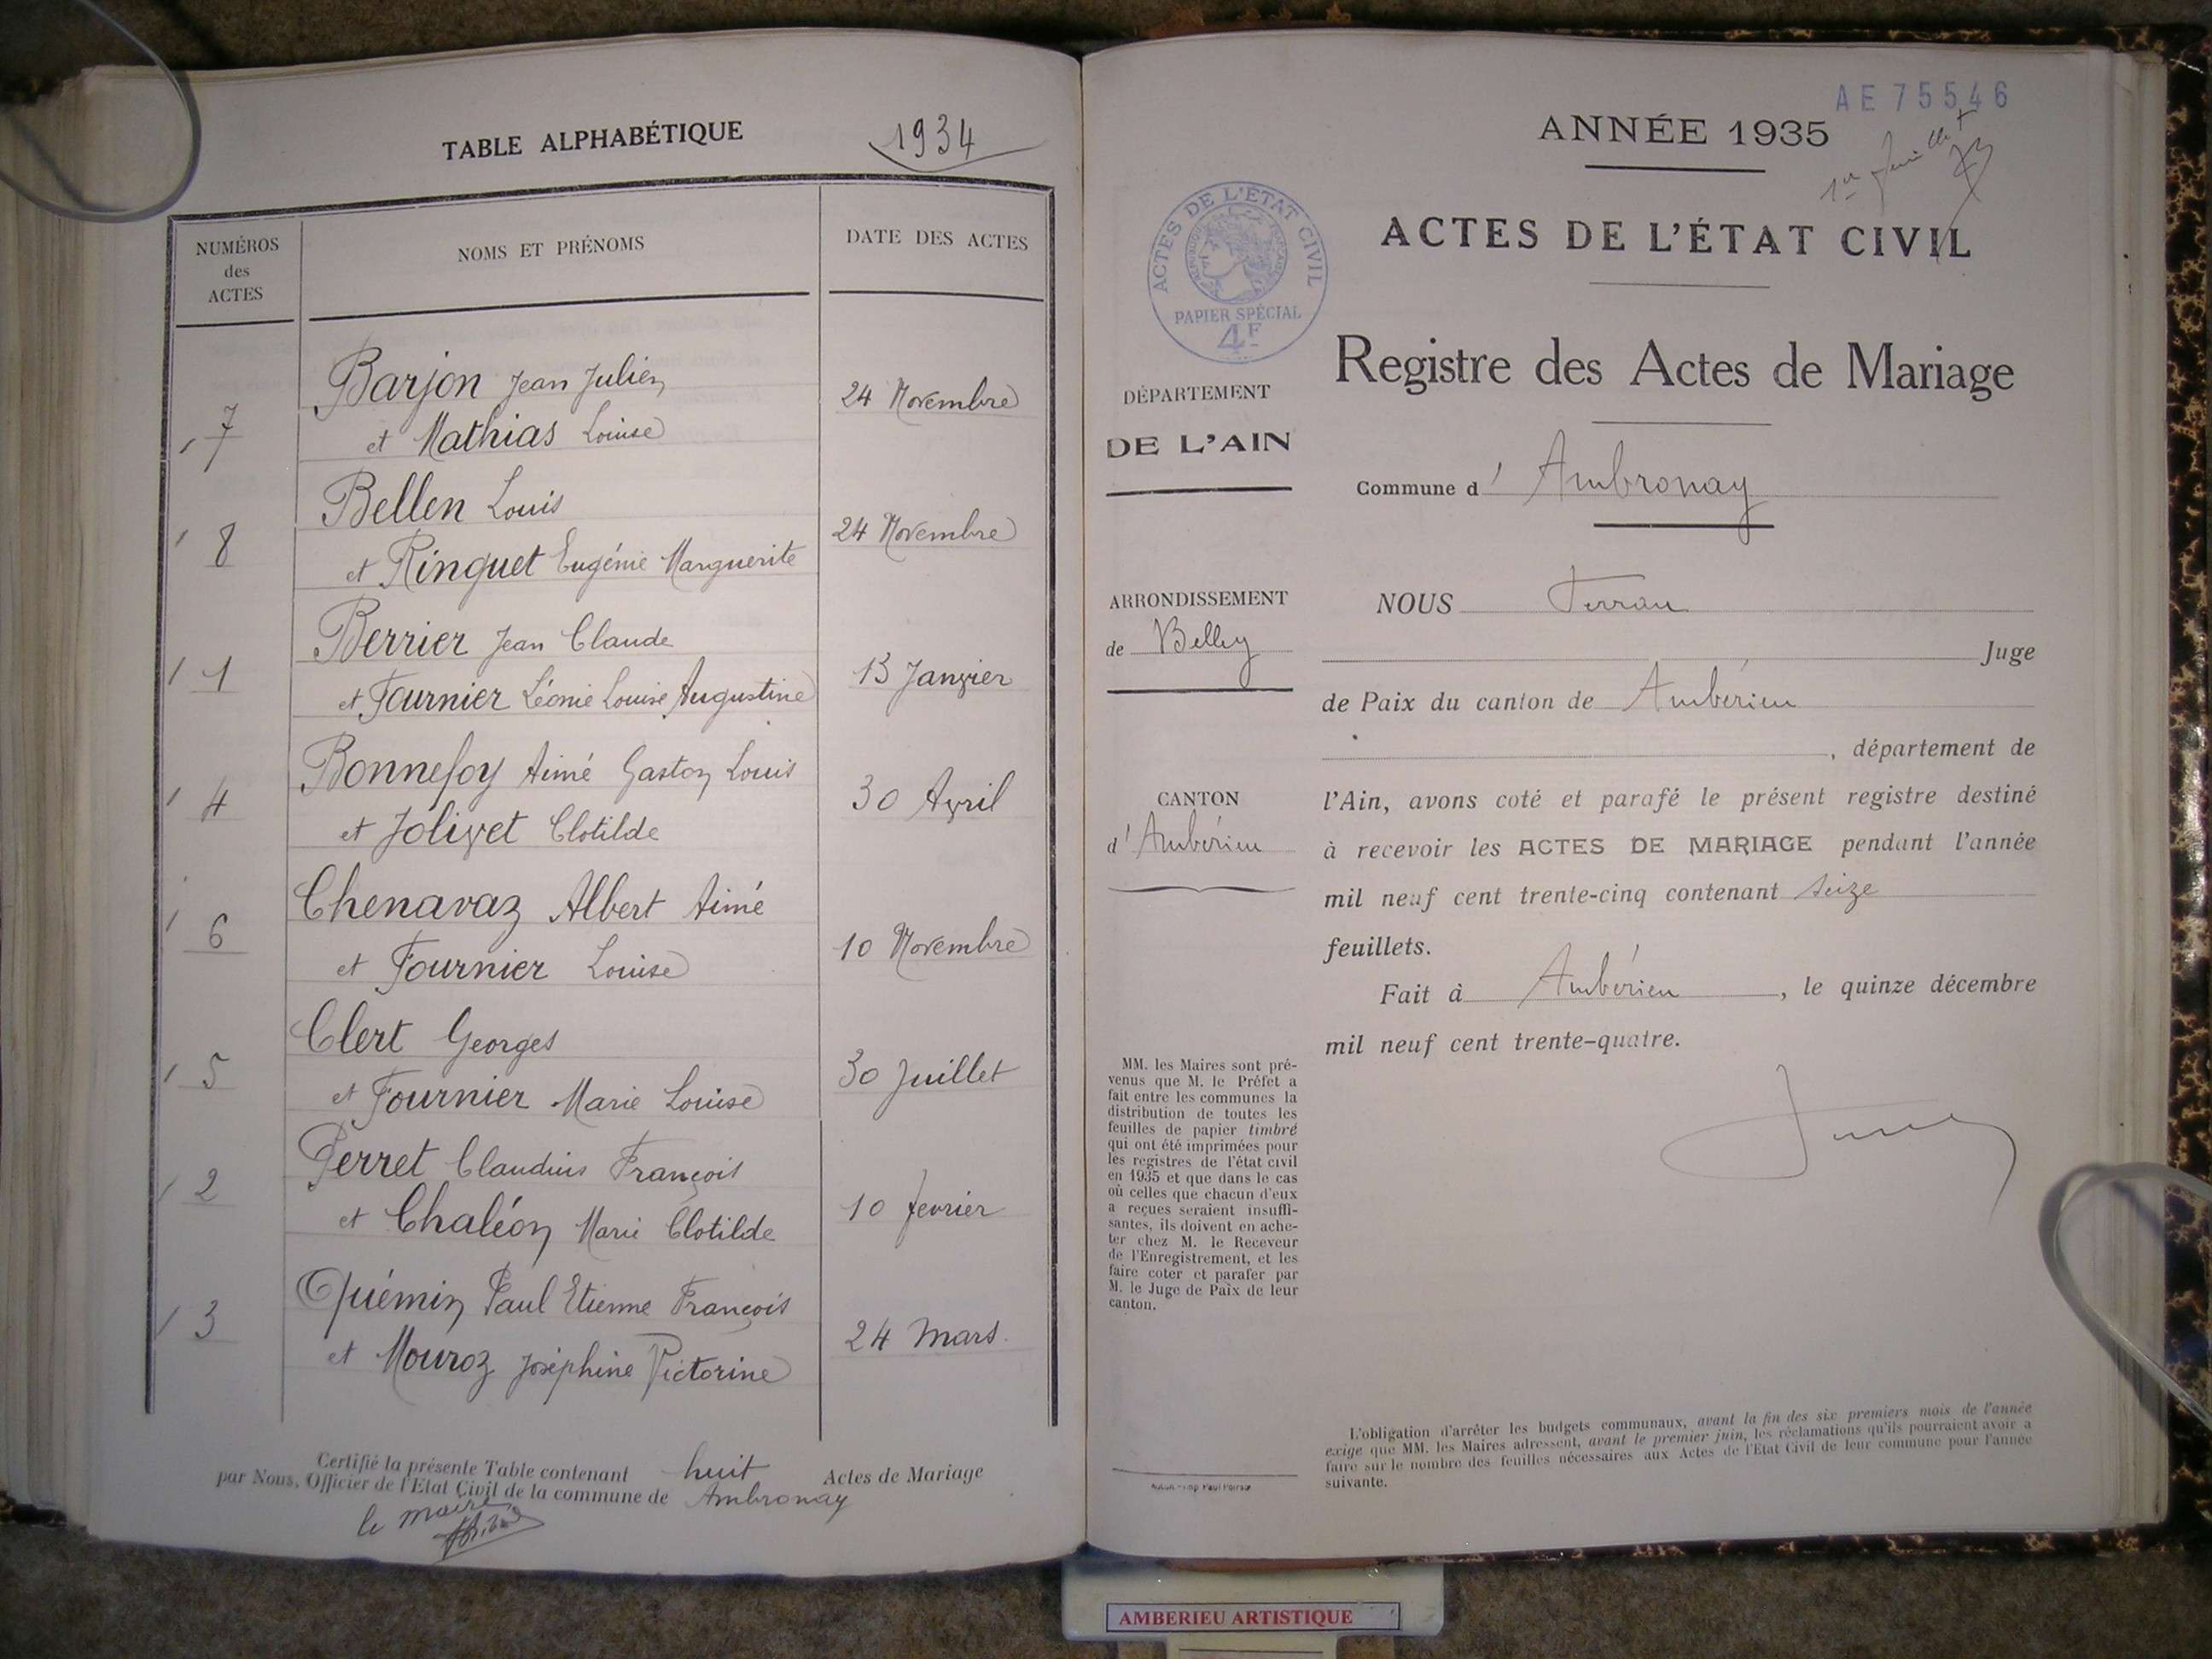 TABLE ALPHABÉTIQUE 1934
NUMÉROS des ACTES
NOMS ET PRÉNOMS
DATE DES ACTES
7 Barjon Jean Julien 24 Novembre
et Mathias Louise
8 Bellen Louis 24 Novembre
et Ringuet Eugénie Marguerite
1 Berrier Jean Claude 13 Janvier
et Fournier Léonie Louise Augustine
4 Bonnefoy Aimé Gaston Louis 30 Avril
et Jolivet Clotilde
6 Chenavaz Albert Aimé 10 Novembre
et Fournier Louise
5 Clert Georges 30 Juillet
et Fournier Marie Louise
2 Perret Claudius François 10 fevrier
et Chaléon Marie Clotilde
3 Quémin Paul Etienne François 24 Mars
et Mouroz Joséphine Victorine
Certifié la présente Table contenant huit Actes de Mariage
par Nous, Officier de l'Etat Civil de la commune de Ambronay
le maire
AE 75546
ANNÉE 1935
1er feuillet
ACTES DE L'ÉTAT CIVIL
ACTES DE L'ETAT CIVIL
PAPIER SPÉCIAL
4F
Registre des Actes de Mariage
DÉPARTEMENT
DE L'AIN
Commune d' Ambronay
ARRONDISSEMENT
de Belley
CANTON
d'Ambérieu
NOUS Ferran
Juge
de Paix du canton de Ambérieu
, département de
l'Ain, avons coté et parafé le présent registre destiné
à recevoir les ACTES DE MARIAGE pendant l'année
mil neuf cent trente-cinq contenant seize
feuillets.
Fait à Ambérieu, le quinze décembre
mil neuf cent trente-quatre.
MM. les Maires sont pré-
venus que M. le Préfet a
fait entre les communes la
distribution de toutes les
feuilles de papier timbré
qui ont été imprimées pour
les registres de l'état civil
en 1935 et que dans le cas
où celles que chacun d'eux
a reçues seraient insuffi-
santes, ils doivent en ache-
ter chez M. le Receveur
de l'Enregistrement, et les
faire coter et parafer par
M. le Juge de Paix de leur
canton.
L'obligation d'arrêter les budgets communaux, avant la fin des six premiers mois de l'année
exige que MM. les Maires adressent, avant le premier juin, les réclamations qu'ils pourraient avoir à
faire sur le nombre des feuilles nécessaires aux Actes de l'Etat Civil de leur commune pour l'année
suivante.
AMBERIEU ARTISTIQUE